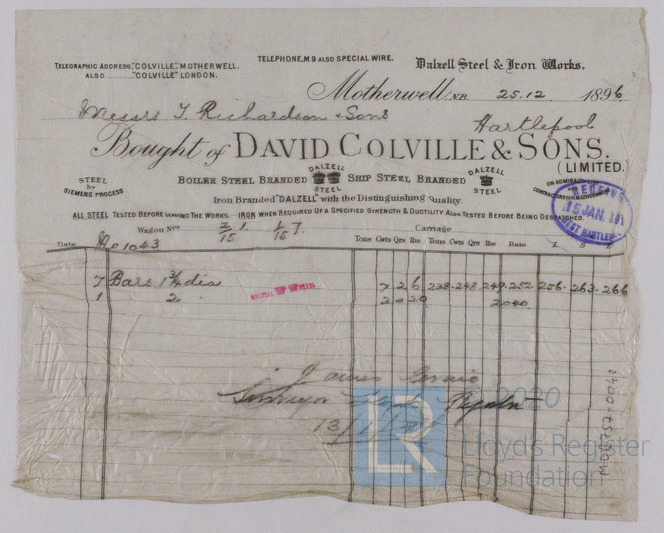 TELEGRAPHIC ADDRESS, "COLVILLE," MOTHERWELL.
ALSO "COLVILLE" LONDON.
TELEPHONE, M9 ALSO SPECIAL WIRE.
Dalzell Steel & Iron Works.
Motherwell, N.B. 25.12 1896
Messrs T. Richardson & Sons
Hartlepool
Bought of DAVID COLVILLE & SONS.
(LIMITED.
STEEL by SIEMENS PROCESS
BOILER STEEL BRANDED DALZELL STEEL SHIP STEEL BRANDED DALZELL STEEL
ON ADMIRALTY
CONTRACTORS GOVERNMENT
Iron Branded "DALZELL" with the Distinguishing Quality
ALL STEEL TESTED BEFORE LEAVING THE WORKS. IRON WHEN REQUIRED OF A SPECIFIED STRENGTH & DUCTILITY ALSO TESTED BEFORE BEING DESPATCHED.
15 JAN. 18
WEST HARTLEP
Wagon Nos 2/15 1. 1/15 7.
Carriage
Date No 1043
Tons Cwts Qrs lbs Tons Cwts Qrs lbs Rate £ S D
7 Bars 1 3/4 dia 7 2 6 238-248 249-252 256-263-266
1 2 2 0 20 2040
James
Surveyor
13/1
© 2020
LR
Lloyd's Register
Foundation